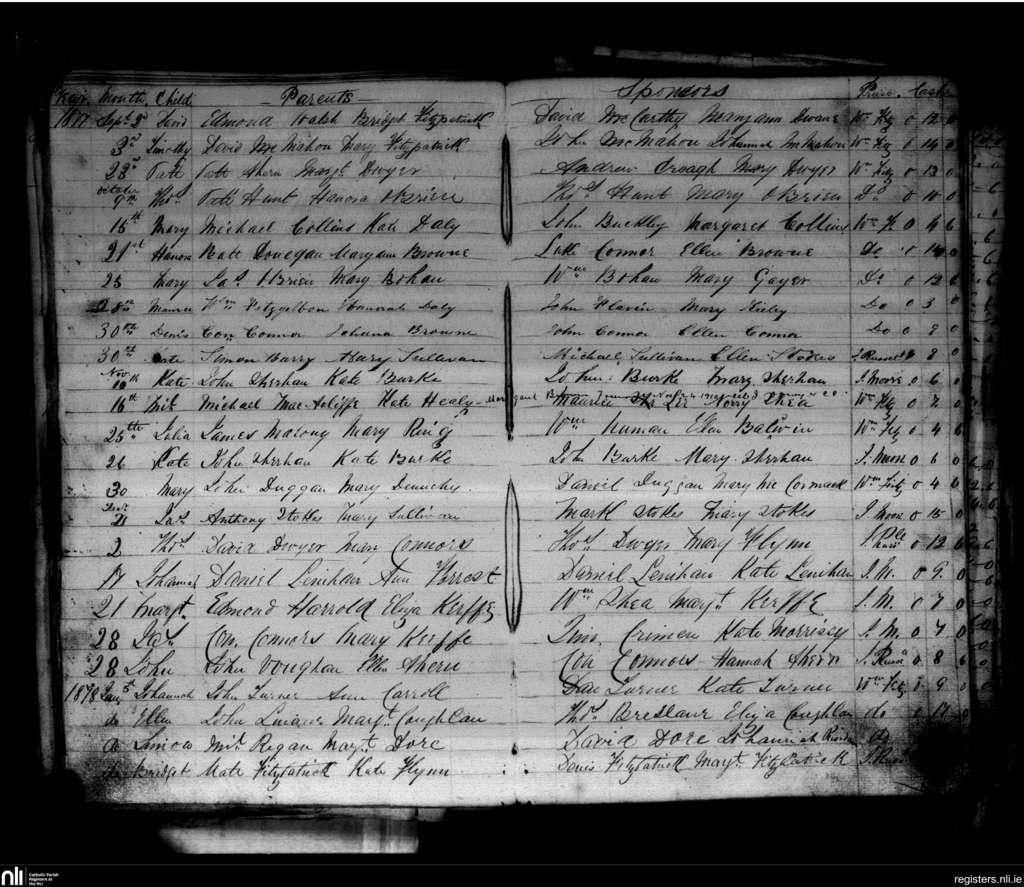 Year Month Child Parents Sponsors Priest Cash
1877 Sept 3rd David Edmond Walsh Bridget Fitzpatrick David McCarthy Maryann Dwane Wm Fitz 0 12 0
3rd Timothy David McMahon Mary Fitzpatrick John McMahon Johannah McMahon Wm Fitz 0 14 0
23rd Patt Patt Ahern Margt. Dwyer Andrew Creagh Mary Dwyer Wm Fitz 0 13 0
October 9th Thos Patt Hunt Hanora O'Brien Thos Hunt Mary O'Brien Do 0 10 0
16th Mary Michael Collins Kate Daly John Buckley Margaret Collins Wm F. 0 4 6
21st Hanora Matt Donegan Maryann Browne Luke Connor Ellen Browne Do 0 14 0
25 Mary Jas O'Brien Mary Bohan Wm Bohan Mary Gayer Do 0 12 6
28th Maurice Wm Fitzgibbon Hannah Daly John Flavin Mary Do 0 3 0
30th Denis Con Connor Johana Browne John Connor Ellen Connor Do 0 8 0
30th Kate Simon Barry Mary Sullivan Michael Sullivan Ellen Stokes J. Russell 0 8 0
Nov 10th Kate John Sheehan Kate Burke John Burke Mary Sheehan J. Moore 0 6 0
16th Mic Michael MacAuliffe Kate Healy Maurice Lee Norry Shea Wm Fitz 0 7 0
25th Julia James Malony Mary Ring Wm Nunan Ellen Baldwin Wm Fitz 0 4 6
26 Kate John Sheehan Kate Burke John Burke Mary Sheehan J. Moore 0 6 0
30 Mary John Duggan Mary Dennehy Daniel Duggan Mary McCormack Wm Fitz 0 4 6
Decr 21 Jas Anthony Stokes Mary Sullivan Mark Stokes Mary Stokes J. Moore 0 15 0
2 Thos David Dwyer Mary Connors Thos Dwyer Mary Flynn 0 12 6
17 Johannah Daniel Lenihan Ann Forrest Daniel Lenihan Kate Lenihan J. M. 0 9 0
21 Margt. Edmond Harrold Eliza Kerffe Wm Shea Margt. Kerffe J. M. 0 7 0
28 Jas. Con. Connors Mary Kerffe Tim Crimen Kate Morrissy J. M. 0 7 0
28 John John Voughan Ellen Ahern Con Connors Hannah Ahern J. Russell 0 8 6
1878 Jany 5th Johannah John Turner Ann Carroll Dan Turner Kate Turner Wm Fitz 0 9 0
do Ellen John Margt. Coughlan Thos Eliza Coughlan do 0 17 0
do Simon Mic Regan Margt. Dore David Dore Johannah do
do Bridget Mate Fitzpatrick Kate Flynn Denis Fitzpatrick Margt. Fitzpatrick J. Russ
nli Catholic Parish Registers at the NLI
registers.nli.ie